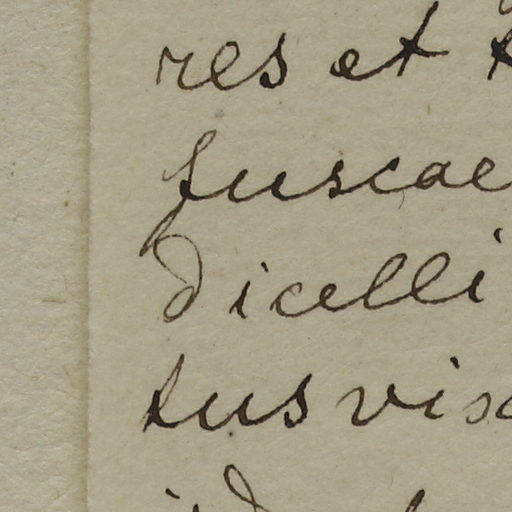 res et
fuscae
dicelli
tus vis